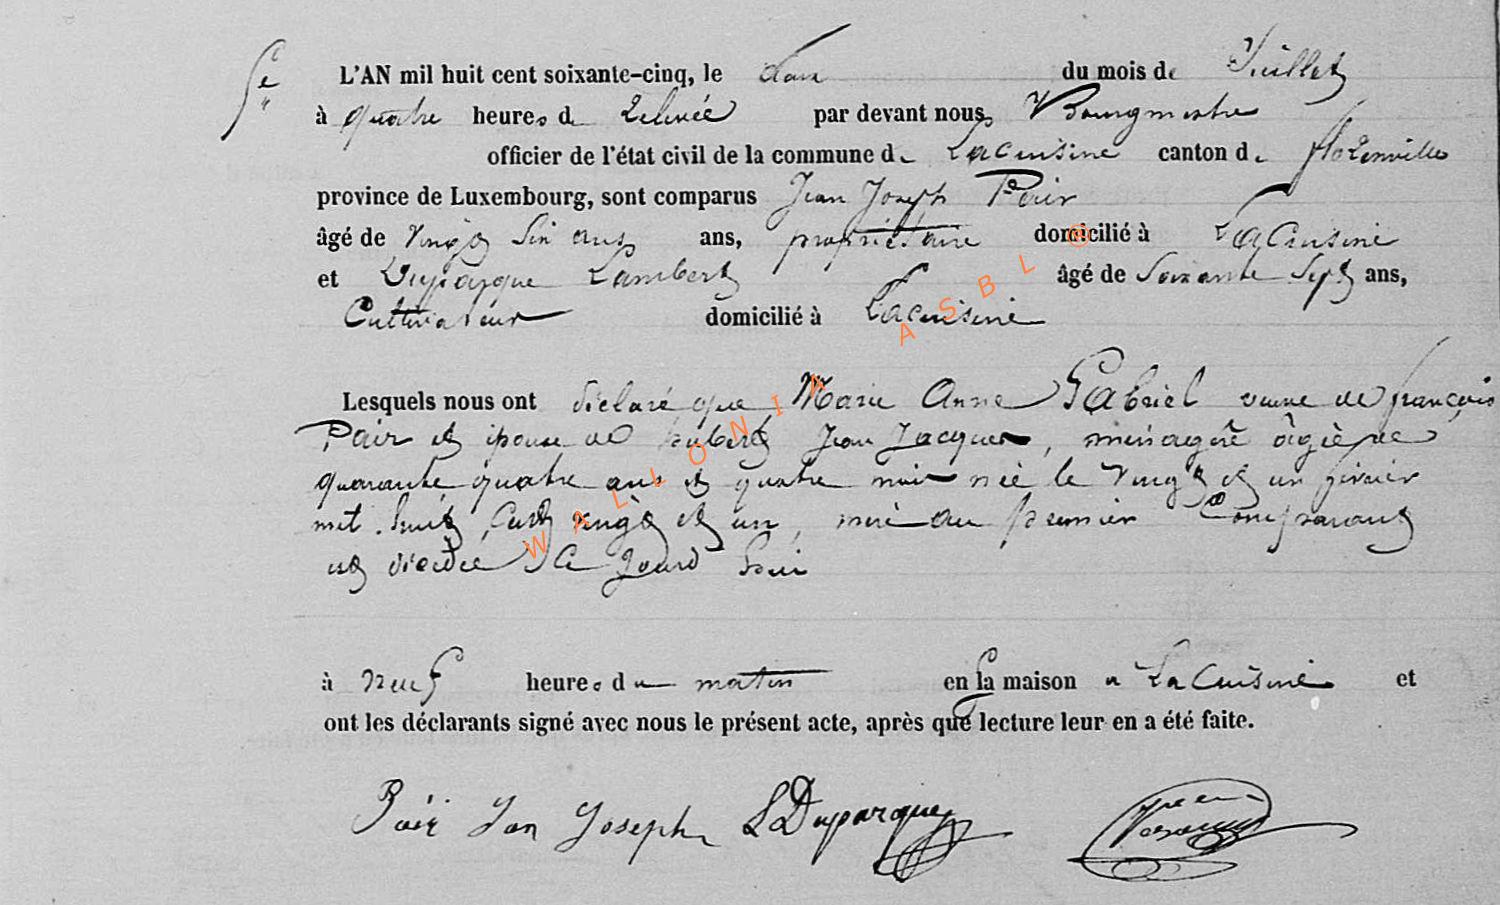 L'AN mil huit cent soixante-cinq, le deux du mois de Juillet
à quatre heures de relevée par devant nous, Bourgmestre
officier de l'état civil de la commune de Lacuisine canton de florenville
province de Luxembourg, sont comparus Jean Joseph Poir
âgé de vingt six ans ans, propriétaire domicilié à LaCuisine
et Duparque Lambert âgé de Soixante Sept ans,
Cultivateur domicilié à Lacuisine
Lesquels nous ont déclaré que Marie Anne Gabriel veuve de françois
Pair et épouse de hubert Jean Jacques, ménagère âgée de
quarante quatre ans et quatre mois née le vingt et un février
mil huit Cent vingt et un, mère au premier Comparant
est décédée Ce Jourd hui
à neuf heures du matin en sa maison à LaCuisine et
ont les déclarants signé avec nous le présent acte, après que lecture leur en a été faite.
Poir Jan Joseph LDuparque
WALLONIA ASBL ©